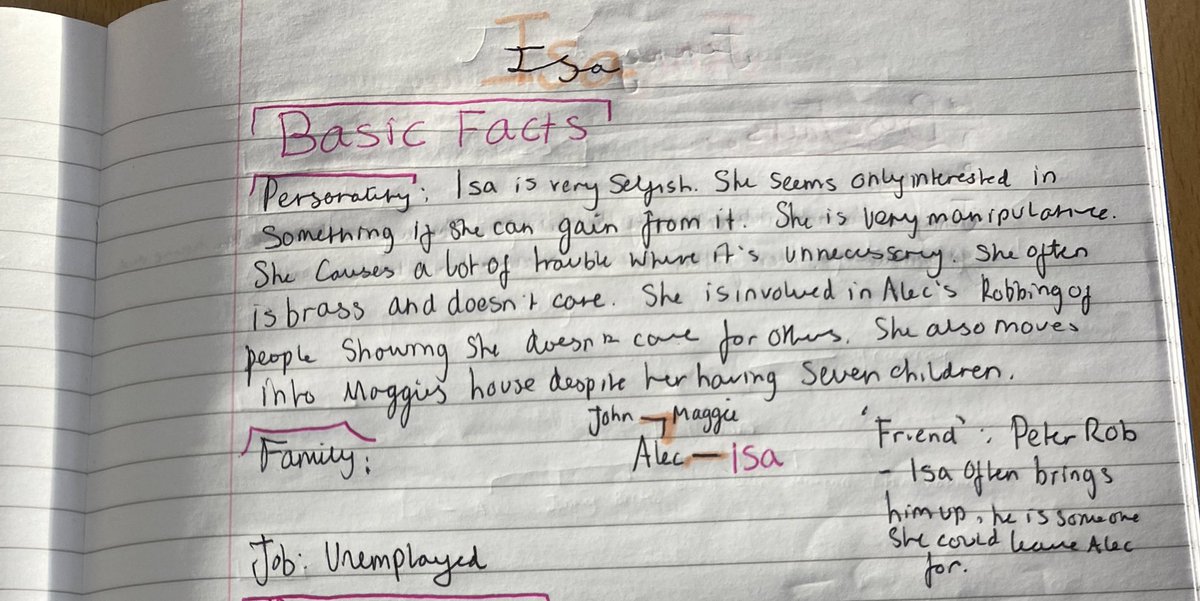 Isa
Basic Facts
Personality: Isa is very selfish. She seems only interested in
something if she can gain from it. She is very manipulative.
She causes a lot of trouble where it's unnecessary. She often
is brass and doesn't care. She is involved in Alec's Robbing of
people showing she doesn't care for others. She also moves
into Maggie's house despite her having seven children.
Family:
John Maggie
Alec — isa
'Friend': Peter Rob
- Isa often brings
him up, he is someone
she could leave Alec
for.
Job: Unemployed